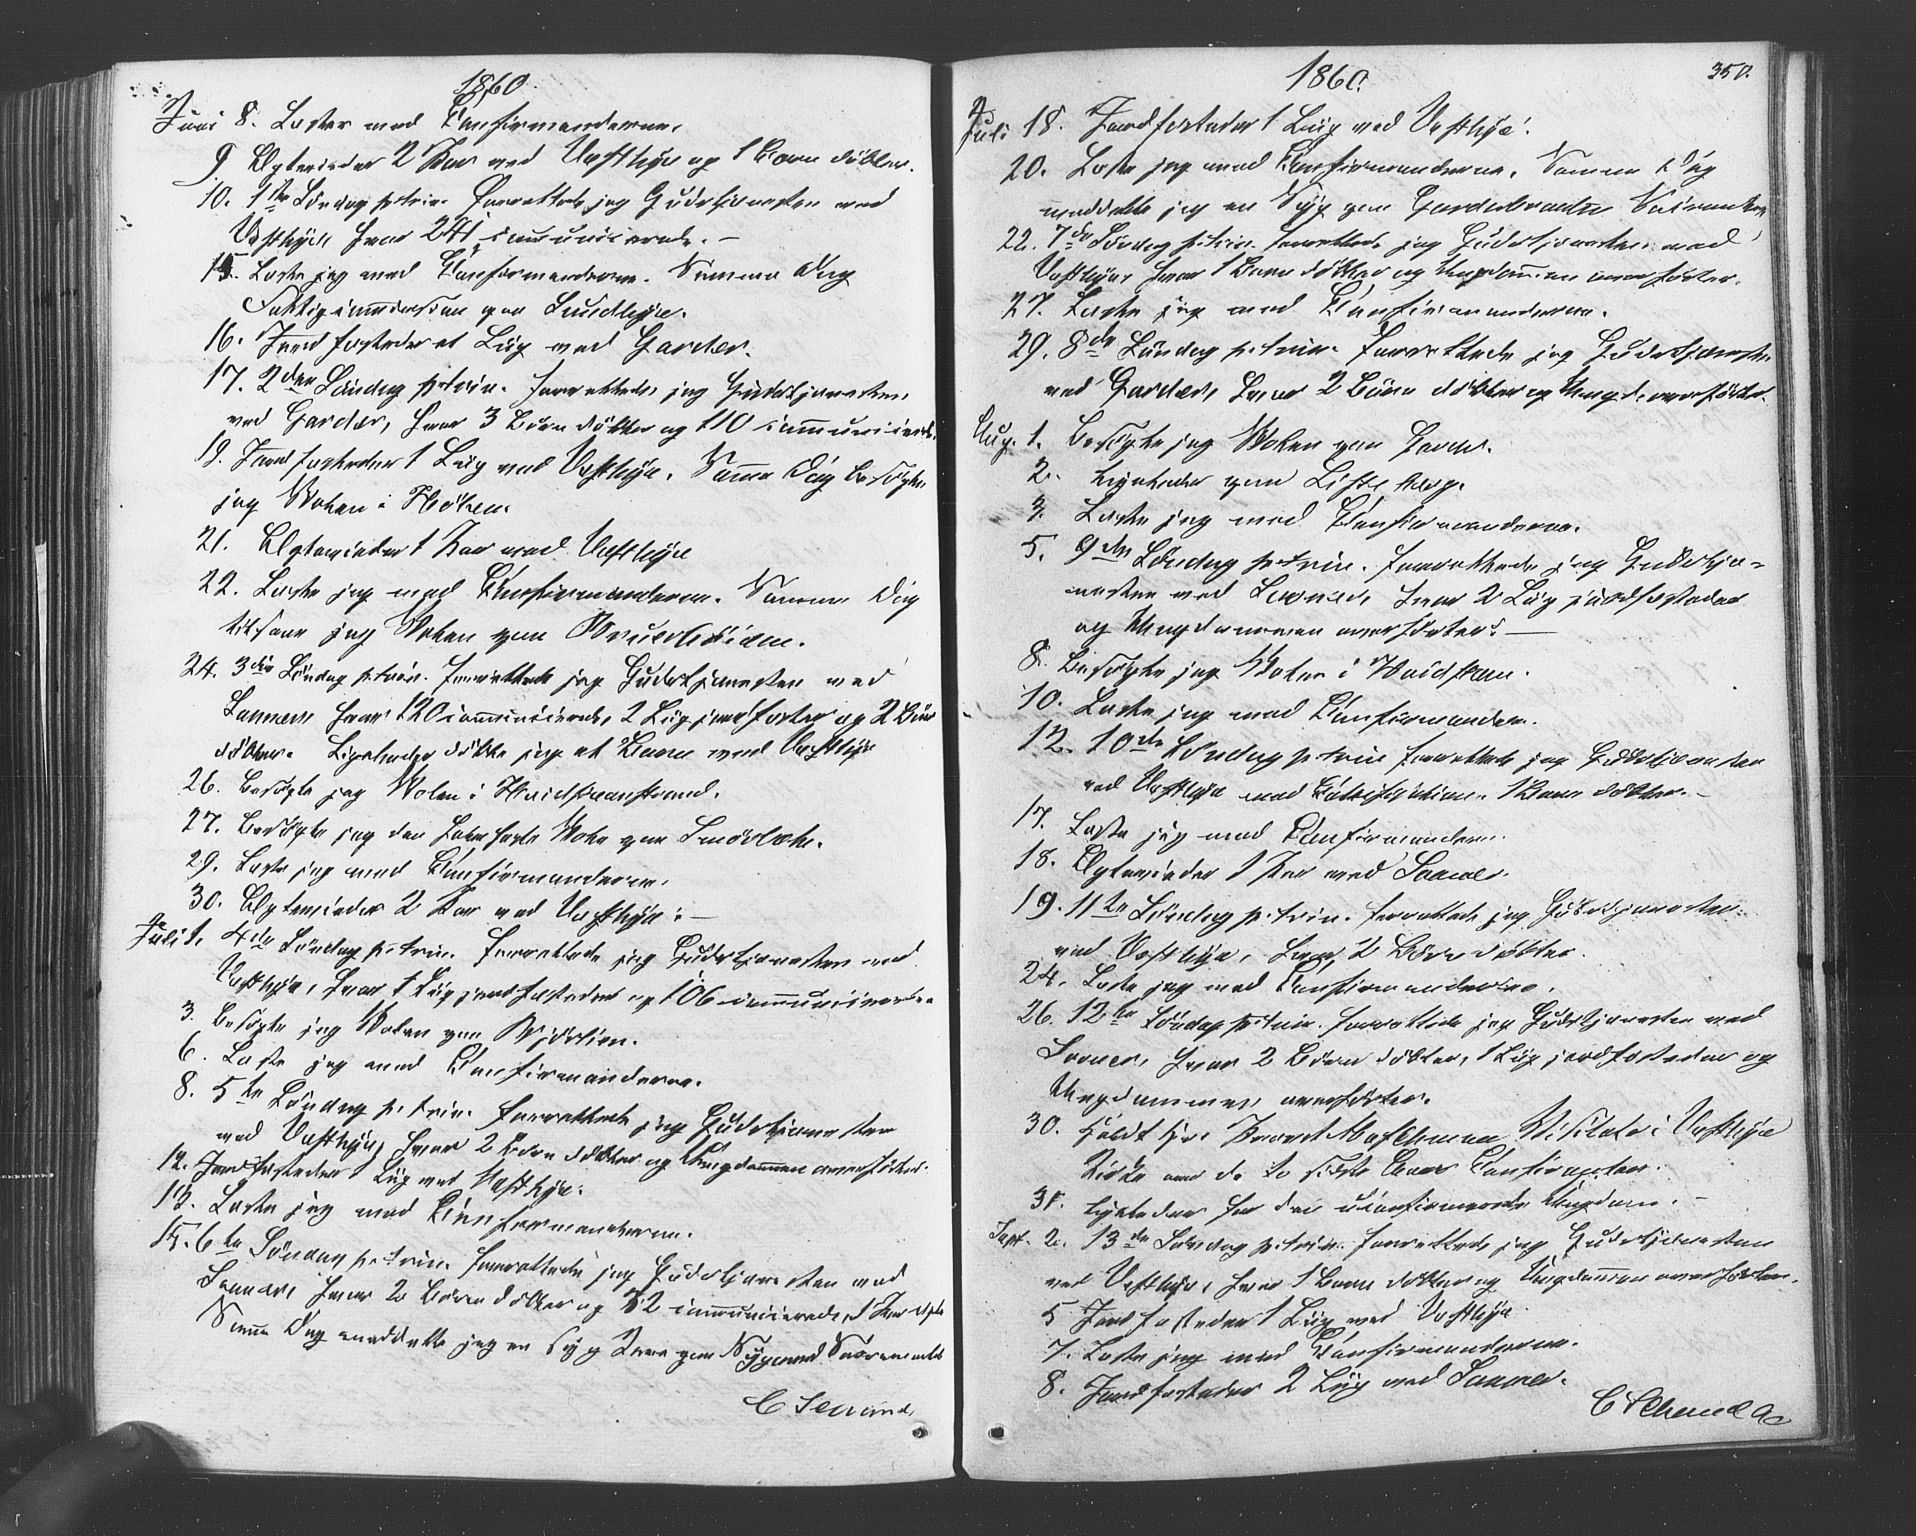 1860
Juni 8. Læste med Confirmanderne.
9. Egteviede 2 Par ved Vestbye og 1 Barn døbtes.
10. 1ste Søndag p. trin. forrettede jeg Gudstjenesten ved
Vestbye, hvor 241 communicerede. —
15. Læste jeg med Confirmanderne. Samme Dag
Fattigcommission paa Sundbye.
16. Jordfæstedes et Liig ved Garder.
17. 2den Søndag p. trin. forrettede jeg Gudstjenesten
ved Garder, hvor 3 Børn døbtes og 110 communicerede.
19. Jordfæstedes 1 Liig ved Vestbye. Samme Dag besøgte
jeg Skolen i
21. Egteviedes 1 Par ved Vestbye
22. Læste jeg med Confirmanderne. Samme Dag
tilsaae jeg Skolen paa
24. 3die Søndag p. trin. forrettede jeg Gudstjenesten ved
Soner, hvor 120 communicerede, 2 Liig jordfæstes og 2 Børn
døbtes. Ligeledes døbte jeg et Barn ved Vestbye
26. Besøgte jeg Skolen i Hvidsteenstrand.
27. Besøgte jeg den Skole paa Smørbæk.
29. Læste jeg med Confirmanderne.
30. Egteviedes 2 Par ved Vestbye. —
Juli 1. 4de Søndag p. trin. forrettede jeg Gudstjenesten ved
Vestbye, hvor 1 Liig jordfæstedes og 106 communicerede.
3. Besøgte jeg Skolen paa
6. Læste jeg med Confirmanderne.
8. 5te Søndag p. trin. forrettede jeg Gudstjenesten
ved Vestbye, hvor 2 Børn døbtes og Ungdommen overhørtes.
12. Jordfæstedes 1 Liig ved Vestbye.
13. Læste jeg med Confirmanderne.
15. 6te Søndag p. trin. forrettede jeg Gudstjenesten ved
Soner, hvor 2 Børn døbtes og 52 communicerede, 1 Par
Samme Dag meddelte jeg en syg paa
C Schwand
1860.
350.
Juli 18. Jordfæstedes 1 Liig ved Vestbye.
20. Læste jeg med Confirmanderne. Samme Dag
meddelte jeg en Syg paa
22. 7de Søndag p. trin. forrettede jeg Gudstjenesten ved
Vestbye, hvor 1 Barn døbtes og Ungdommen overhørtes.
27. Læste jeg med Confirmanderne.
29. 8de Søndag p. trin. forrettede jeg Gudstjenesten
ved Garder, hvor 2 Børn døbtes og Ungd. overhørtes.
Aug. 1. Besøgte jeg Skolen paa Garder.
2. Ligeledes paa
3. Læste jeg med Confirmanderne.
5. 9de Søndag p. trin. forrettede jeg Gudstje-
nesten ved Soner, hvor 2 Liig jordfæstedes
og Ungdommen overhørtes. —
8. Besøgte jeg Skolen i Hvidsteen.
10. Læste jeg med Confirmanderne.
12. 10de Søndag p. trin. forrettede jeg Gudstjenesten
ved Vestbye med Catechisation. 1 Barn døbtes. —
17. Læste jeg med Confirmanderne.
18. Egteviedes 1 Par ved Soner.
19. 11te Søndag p. trin. forrettede jeg Gudstjenesten
ved Vestbye, hvor 2 Børn døbtes.
24. Læste jeg med Confirmanderne.
26. 12te Søndag p. trin. forrettede jeg Gudstjenesten ved
Soner, hvor 2 Børn døbtes, 1 Liig jordfæstedes og
Ungdommen overhørtes.
30. Holdt Hr. Provst Visitats i Vestbye
Kirke med de to sidste Aars Confirmanter.
31. Ligeledes for den uconfirmerede Ungdom. —
Sept. 2. 13de Søndag p. trin. forrettede jeg Gudstjenesten
ved Vestbye, hvor 1 Barn døbtes og Ungdommen overhørtes.
5 Jordfæstedes 1 Liig ved Vestbye.
7. Læste jeg med Confirmanderne.
8. Jordfæstedes 2 Liig ved Soner.